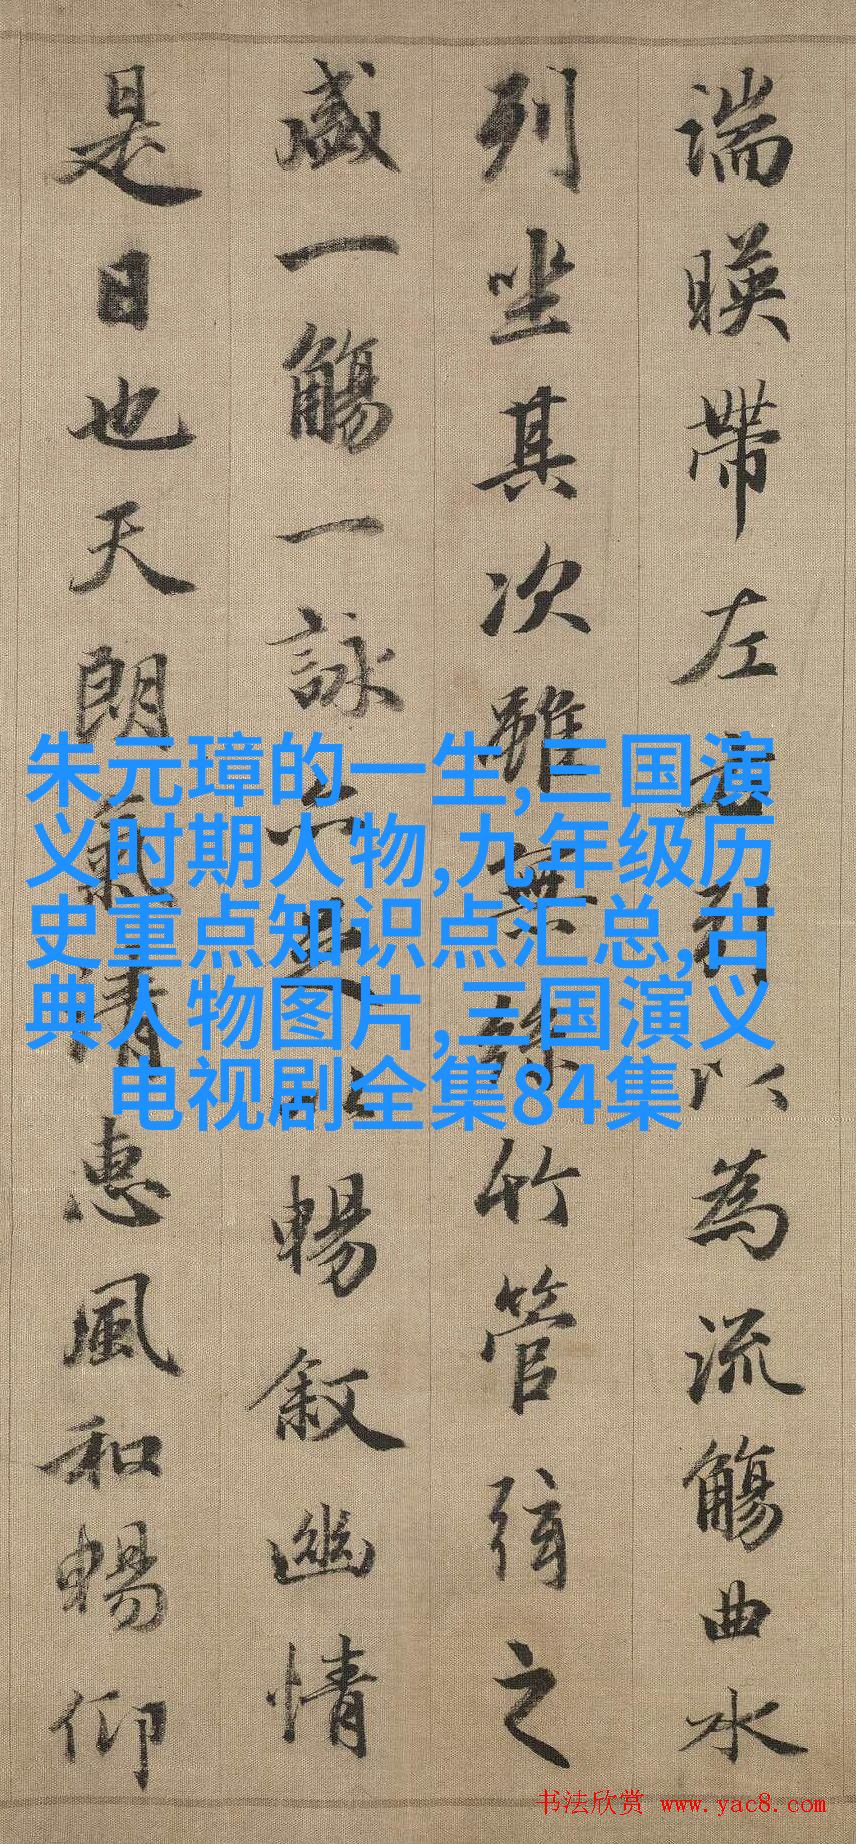 湍暎帶左右引以為流觴曲水
列坐其次雖無絲竹管弦之
盛一觴一詠亦足以暢叙幽情
是日也天朗氣清惠風和暢仰
朱元璋的一生,三国演
义时期人物,九年级历
史重点知识点汇总,古
典人物图片,三国演义
电视剧全集84集
书法欣赏 www.yac8.com